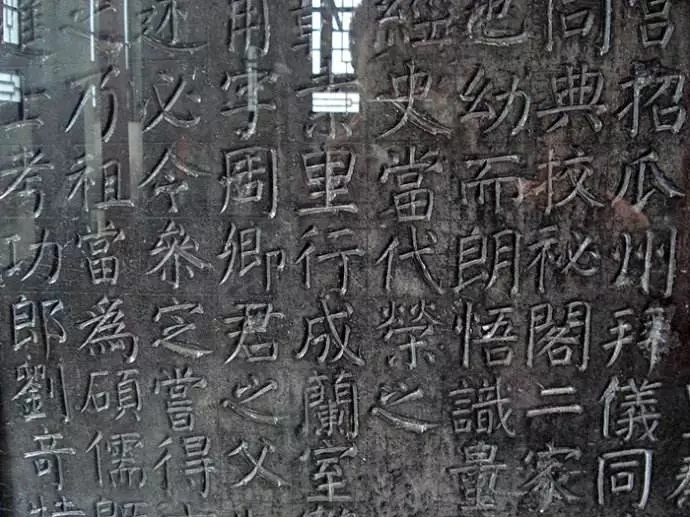 官招瓜州拜儀同
同典校祕閣二家
也幼而朗悟識量
經史當代榮之
里行成蘭室
字周卿君之父
述必令參定嘗得
乃祖當為碩儒
士考功郎劉奇